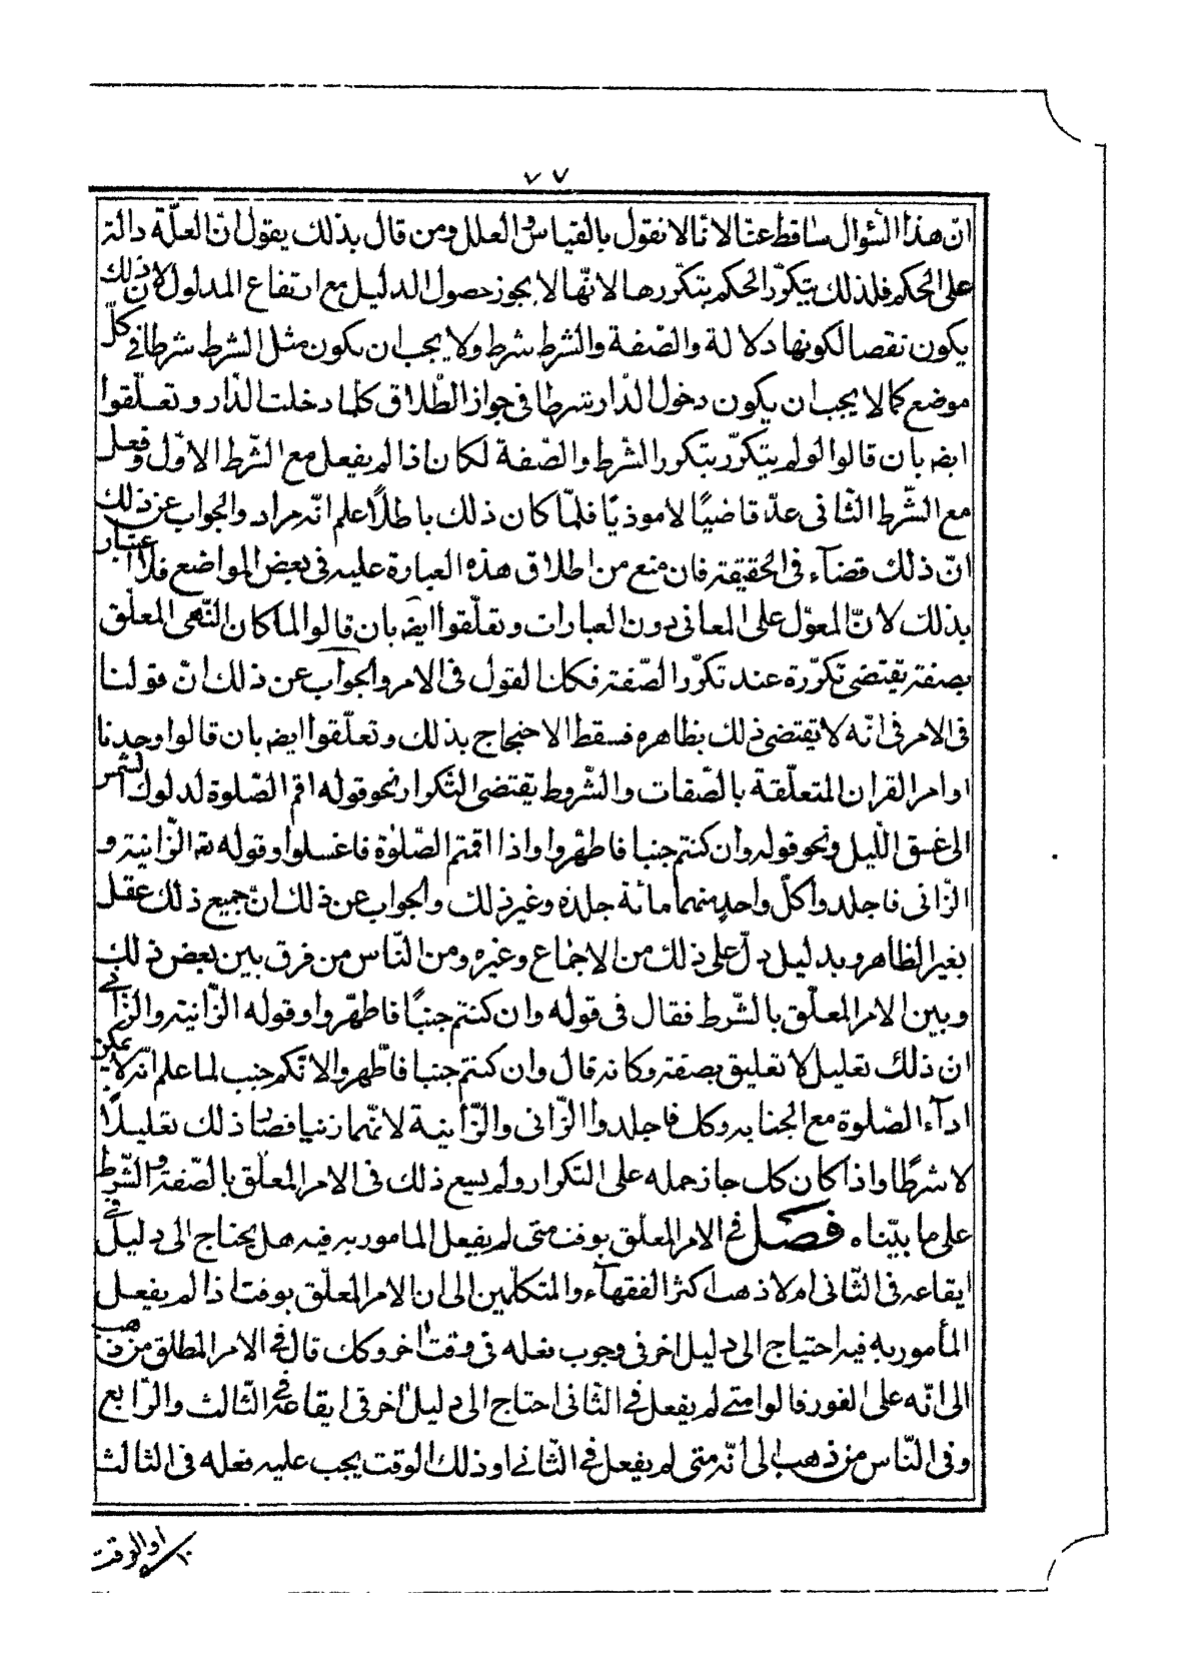 ٧٧
انّ هذا السّؤال ساقط عنّا لانّا لا نقول بالقياس والعلل ومن قال بذلك يقول انّ العلّة دالّة
على الحكم فلذلك يتكوّر الحكم بتكرّرها لانّها لا يجوز حصول الدليل مع ارتفاع المدلول لان ذلك
يكون نقصا لكونها دلالة والصّفة والشرط شرط ولا يجب ان يكون مثل الشرط شرطا في كلّ
موضع كما لا يجب ان يكون دخول الدّار شرطا فى جواز الطّلاق كلّما دخلت الدّار وتعلّقوا
ايضه بان قالوا لو لم يتكوّر بتكور الشرط والصّفة لكان اذا لم يفعل مع الشّرط الاوّل وفعل
مع الشّرط الثّانى عدّ قاضيًا لا موذيًا فلمّا كان ذلك باطلًا علم انّه مراد والجواب عن ذلك
انّ ذلك قضآء فى الحقيقة فان منع من اطلاق هذه العبارة عليه فى بعض المواضع فلا اعتبار
بذلك لانّ المعوّل على المعانى دون العبارات وتعلّقوا ايضه بان قالوا لما كان النّهى المعلّق
بصفة يقتضى تكرّرة عند تكرّر الصّفة فكذا القول فى الامر والجواب عن ذلك انّ قولنا
فى الامر فى انّه لا تقتضى ذلك بظاهره فسقط الاحتجاج بذلك وتعلّقوا ايضه بان قالوا وجدنا
اوامر القران المتعلّقة بالصّفات والشّروط يقتضى التّكوار نحو قوله اقم الصّلوة لدلوك الشّمس
الى غسق اللّيل ونحو قوله وان كنتم جنبا فاطهّروا واذا اقمتم الصّلوة فاغسلوا وقوله تع الزّانية و
الزّانى فاجلدوا كلّ واحدٍ منهما مائة جلدة وغير ذلك والجواب عن ذلك انّ جميع ذلك عقل
بغير الظاهر وبدليل دلّ على ذلك من الاجماع وغيره ومن النّاس من فرق بين بعض ذلك
وبين الامر المعلّق بالشّرط فقال فى قوله وان كنتم جنبًا فاطهّروا وقوله الزّانية والزّانى
ان ذلك تعليل لا تعليق بصفة وكانه قال وان كنتم جنبا فاطّهروا لانكم جنب لما علم انّه لا يمكن
ادآء الصّلوة مع الجنابه وكك فاجلدوا الزّانى والزّانية لانّهما زنيا فصار ذلك تعليلًا
لا شرطًا واذا كان كك جاز حمله على التكوار ولم يسع ذلك فى الامر المعلّق بالصّفة والشّرط
على ما بيّناه فصل فى الامر المعلّق بوقت متى لم يفعل المامور به فيه هل يحتاج الى دليل فى
ايقاعه فى الثّانى ام لا ذهب اكثر الفقهآء والمتكلّمين الى ان الامر المعلّق بوقت اذا لم يفعل
المأمور به فيه احتياج الى دليل اخر فى وجوب فعله فى وقت اخر وكك قال فى الامر المطلق من ذهب
الى انّه على الفور قالوا متى لم يفعل فى الثّانى احتاج الى دليل اخر فى ايقاعه فى الثّالث والرّابع
وفى النّاس من ذهب الى انّه متى لم يفعل فى الثّانى او ذلك الوقت يجب عليه فعله فى الثالث
او الوقت